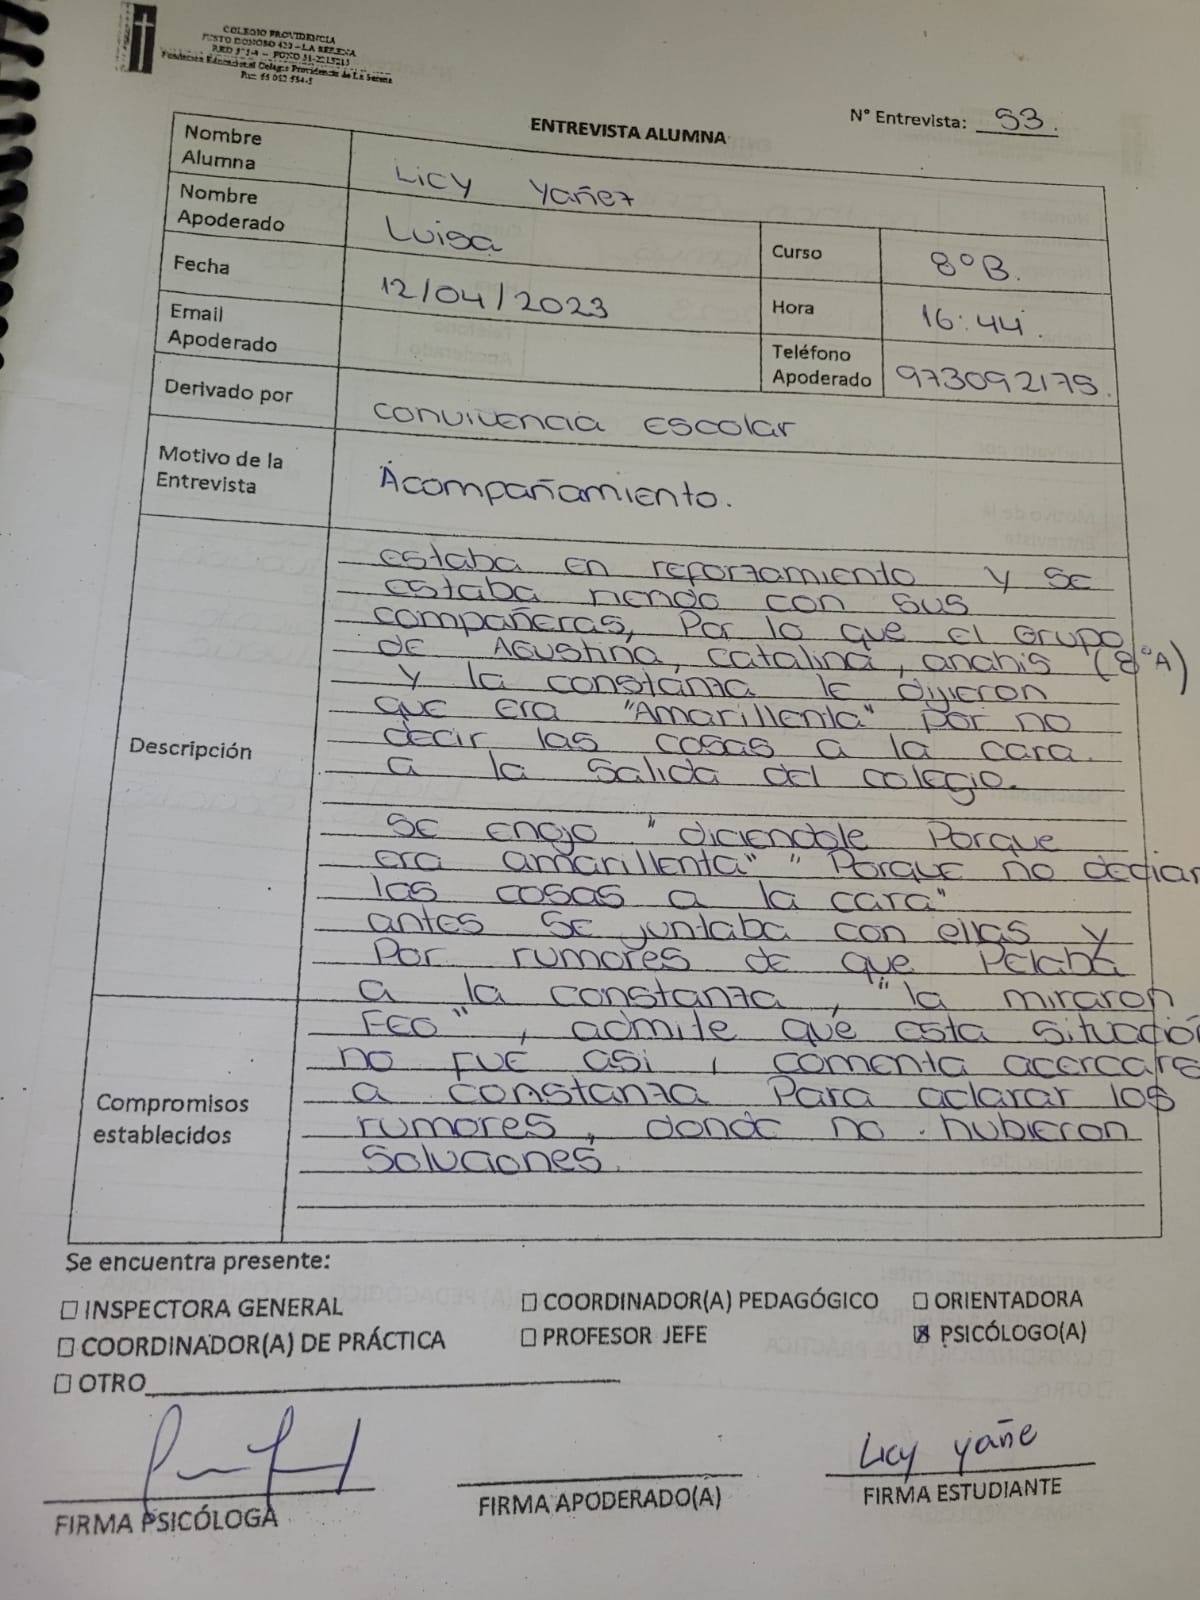 COLEGIO PROVIDENCIA
JUSTO DONOSO 420 – LA SERENA
Fundación Educacional Colegio Providencia de La Serena
N° Entrevista: 53.
ENTREVISTA ALUMNA
Nombre Alumna
Licy Yañez
Nombre Apoderado
Luisa
Curso
8°B.
Fecha
12/04/2023
Hora
16:44.
Email Apoderado
Teléfono Apoderado
973092175.
Derivado por
convivencia escolar
Motivo de la Entrevista
Acompañamiento.
Descripción
estaba en reforzamiento y se
estaba riendo con sus
compañeras, Por lo que el Grupo
de Agustina, catalina, anahis (8°A)
y la constanza le dijeron
que era "Amarillenta" por no
decir las cosas a la cara.
a la salida del colegio.
se enojo "diciendole Porque
era amarillenta" "Porque no decian
las cosas a la cara"
antes se juntaba con ellas y
Por rumores de que Pelaba
a la constanza, "la miraron
Feo", admite que esta situación
no fue asi, comenta acercarse
a constanza Para aclarar los
rumores, donde no hubieron
soluciones.
Compromisos establecidos
Se encuentra presente:
☐ INSPECTORA GENERAL ☐ COORDINADOR(A) PEDAGÓGICO ☐ ORIENTADORA
☐ COORDINADOR(A) DE PRÁCTICA ☐ PROFESOR JEFE ☒ PSICÓLOGO(A)
☐ OTRO
Licy yañe
FIRMA PSICÓLOGA FIRMA APODERADO(A) FIRMA ESTUDIANTE